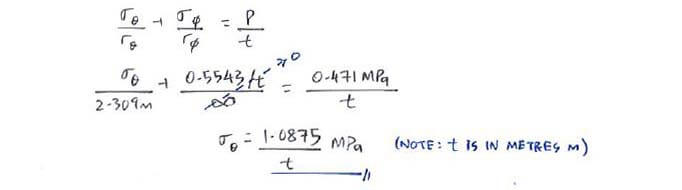 σθ/rθ + σφ/rφ = P/t
σθ/2.309m + 0.5543/t/∞ →0 = 0.471 MPa/t
σθ = 1.0875/t MPa (NOTE: t IS IN METRES M)